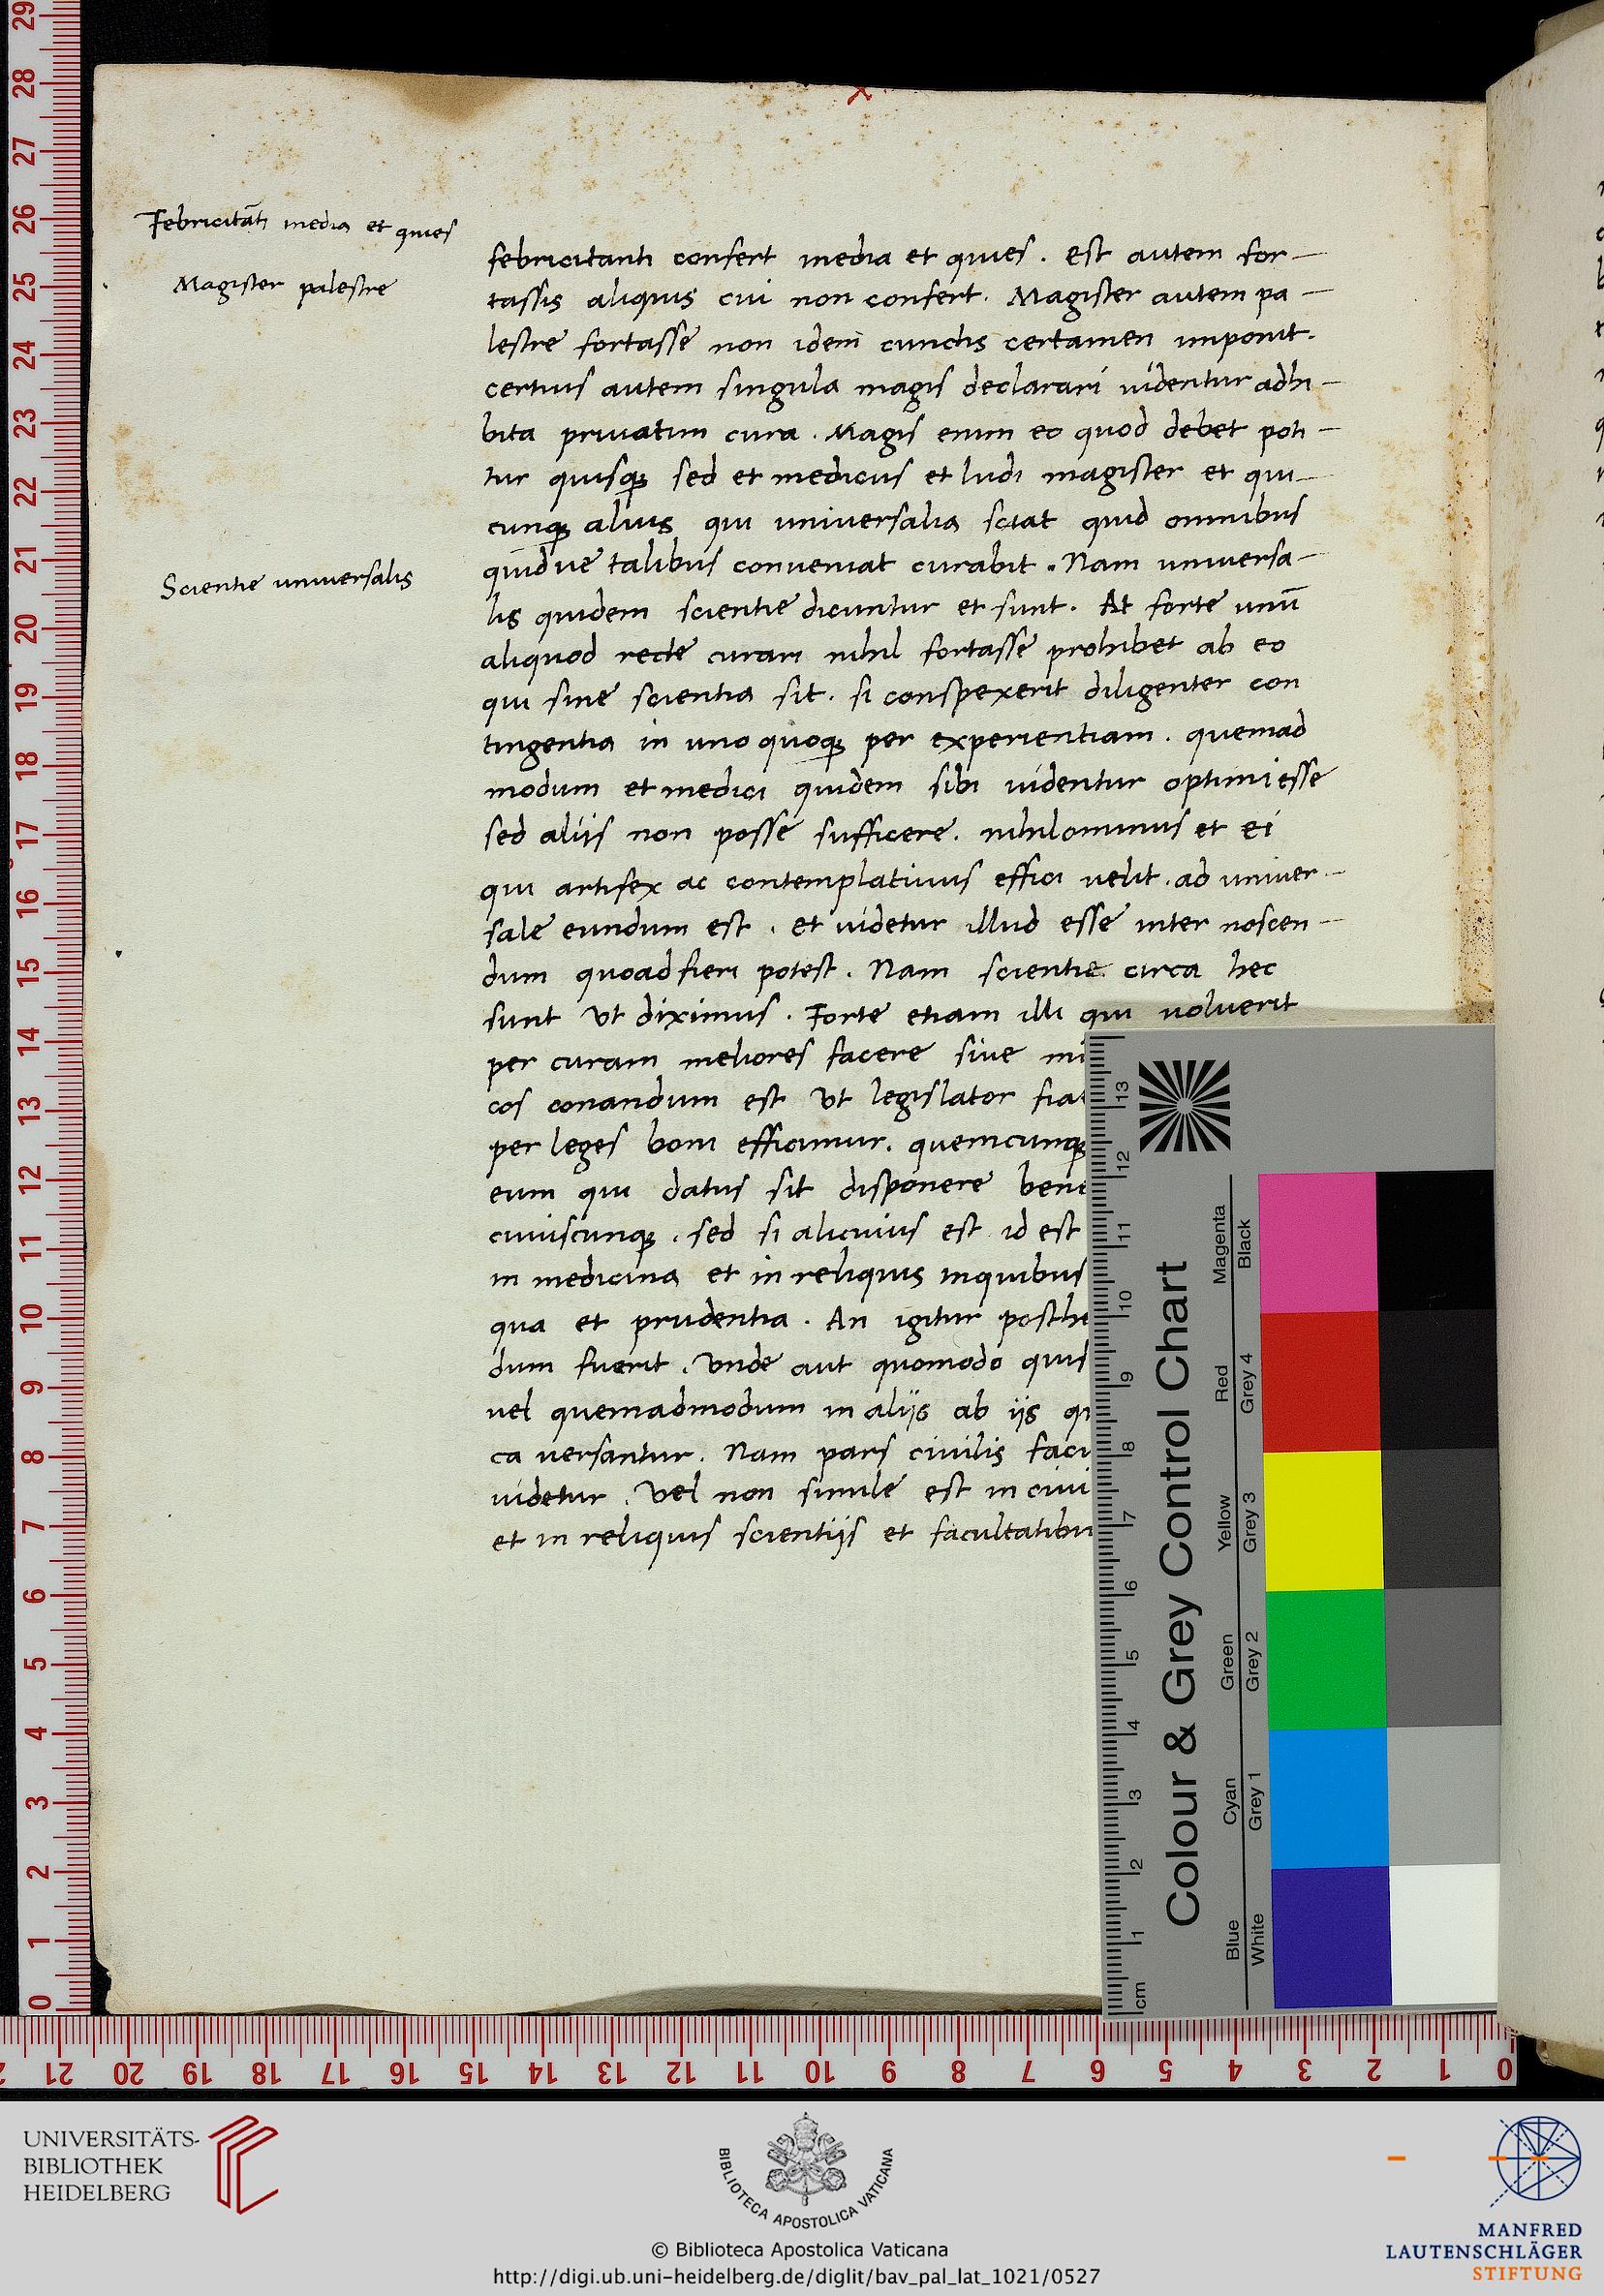 Febricitāti media et quies
Magister palestre
Scientie universalis
febricitanti confert media et quies. est autem for-
tassis aliquis cui non confert. Magister autem pa-
lestre fortasse non idem cunctis certamen imponit.
certius autem singula magis declarari videntur adhi-
bita privatim cura. Magis enim eo quod debet poti-
tur quisqꝫ sed et medicus et ludi magister et qui-
cunqꝫ alius qui universalia sciat quid omnibus
quidve talibus conveniat curabit. Nam universa-
lis quidem scientie dicuntur et sunt. At forte unū
aliquod recte curari nihil fortasse prohibet ab eo
qui sine scientia sit. si conspexerit diligenter con
tingentia in uno quoqꝫ per experientiam. quemad
modum et medici quidem sibi videntur optimi esse
sed aliis non posse sufficere. nihilominus et ei
qui artifex ac contemplativus effici velit. ad univer-
sale eundum est. et videtur illud esse inter noscen-
dum quoad fieri potest. Nam scientie circa hec
sunt ut diximus. Forte etiam illi qui voluerit
per curam meliores facere sive mi
cos conandum est ut legislator fiat
per leges boni efficimur. quemcunqꝫ
eum qui datus sit disponere bene
cuiuscunqꝫ. sed si alicuius est id est
in medicina et in reliquis inquibus
qua et prudentia. An igitur posthe
dum fuerit. unde aut quomodo quis
vel quemadmodum in aliis ab iis qu
ca versantur. Nam pars civilis facu
videtur. vel non simile est in civi
et in reliquis scientiis et facultatibu
29
28
27
26
25
24
23
22
21
20
19
18
17
16
15
14
13
12
11
10
9
8
7
6
5
4
3
2
1
0
13
12
11
10
9
8
7
6
5
4
3
2
1
cm
Colour & Grey Control Chart
Magenta
Black
Red
Grey 4
Yellow
Grey 3
Green
Grey 2
Cyan
Grey 1
Blue
White
21 20 19 18 17 16 15 14 13 12 11 10 9 8 7 6 5 4 3 2 1 0
UNIVERSITÄTS-
BIBLIOTHEK
HEIDELBERG
BIBLIOTECA APOSTOLICA VATICANA
© Biblioteca Apostolica Vaticana
http://digi.ub.uni-heidelberg.de/diglit/bav_pal_lat_1021/0527
MANFRED
LAUTENSCHLÄGER
STIFTUNG